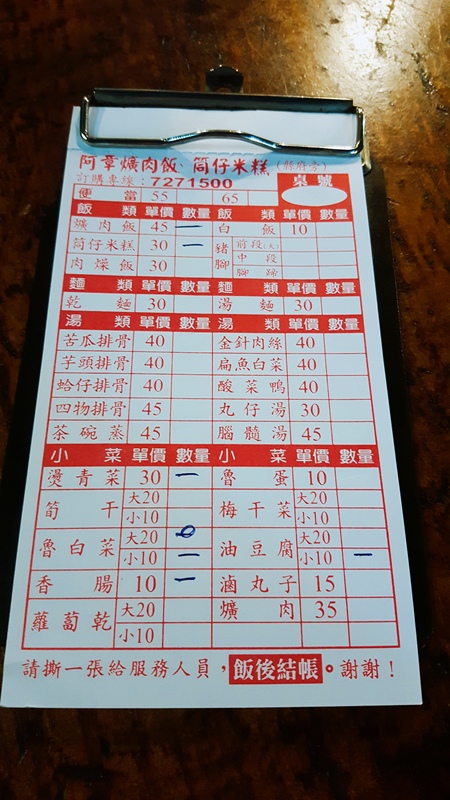 阿章爌肉飯、筒仔米糕(縣府旁)
訂購專線:7271500 桌號
便當 55 65
飯類 單價 數量 飯類 單價 數量
爌肉飯 45 一 白飯 10
筒仔米糕 30 一 豬腳 前段(大)
中段
肉燥飯 30 腳蹄
麵類 單價 數量 麵類 單價 數量
乾麵 30 湯麵 30
湯類 單價 數量 湯類 單價 數量
苦瓜排骨 40 金針肉絲 40
芋頭排骨 40 扁魚白菜 40
蛤仔排骨 40 酸菜鴨 40
四物排骨 45 丸仔湯 30
茶碗蒸 45 腦髓湯 45
小菜 單價 數量 小菜 單價 數量
燙青菜 30 一 魯蛋 10
筍干 大20 梅干菜 大20
小10 小10
魯白菜 大20 油豆腐 大20
小10 一 小10 一
香腸 10 一 滷丸子 15
蘿蔔乾 大20 爌肉 35
小10
請撕一張給服務人員,飯後結帳。謝謝!